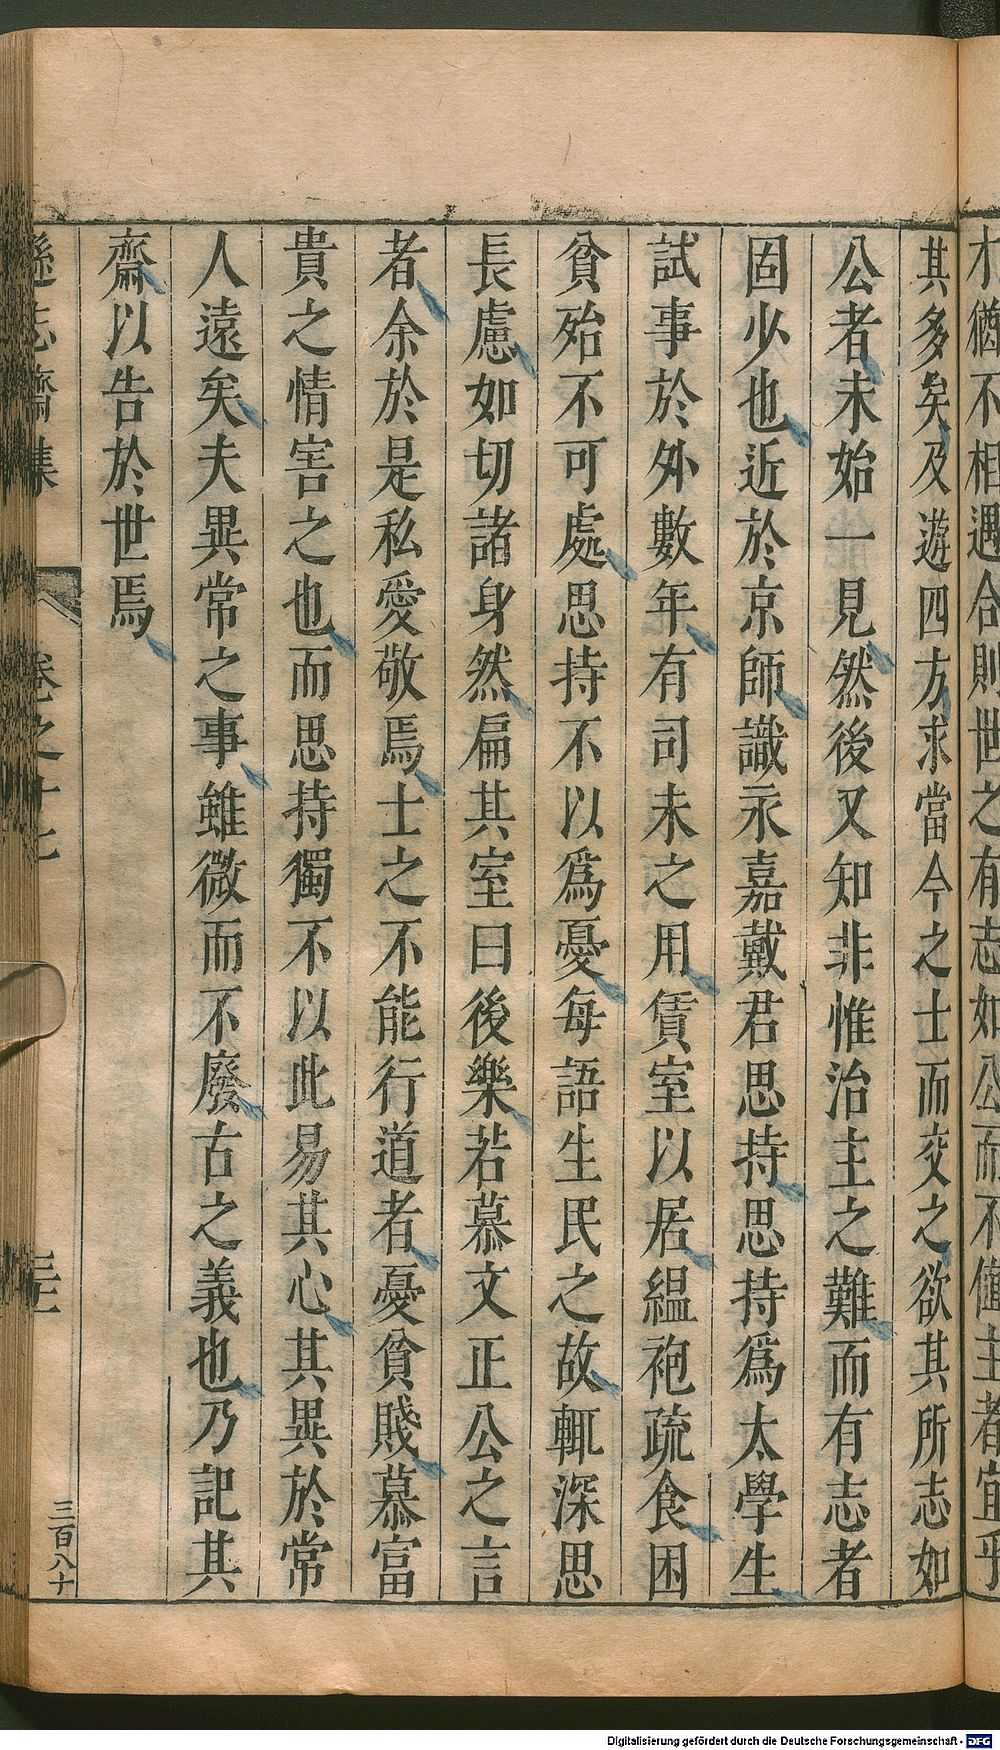 才猶不相遇合則世之有志如公而不僅主者宜乎
其多矣及遊四方求當今之士而交之欲其所志如
公者未始一見然後又知非惟治主之難而有志者
固少也近於京師識永嘉戴君思持思持爲太學生
試事於外數年有司未之用賃室以居縕袍疏食困
貧殆不可處思持不以爲憂每語生民之故輒深思
長慮如切諸身然扁其室曰後樂若慕文正公之言
者余於是私愛敬焉士之不能行道者憂貧賤慕富
貴之情害之也而思持獨不以此易其心其異於常
人遠矣夫異常之事雖微而不廢古之義也乃記其
齋以告於世焉
遜志齋集 卷之十七 三十一 三百八十
Digitalisierung gefördert durch die Deutsche Forschungsgemeinschaft - DFG